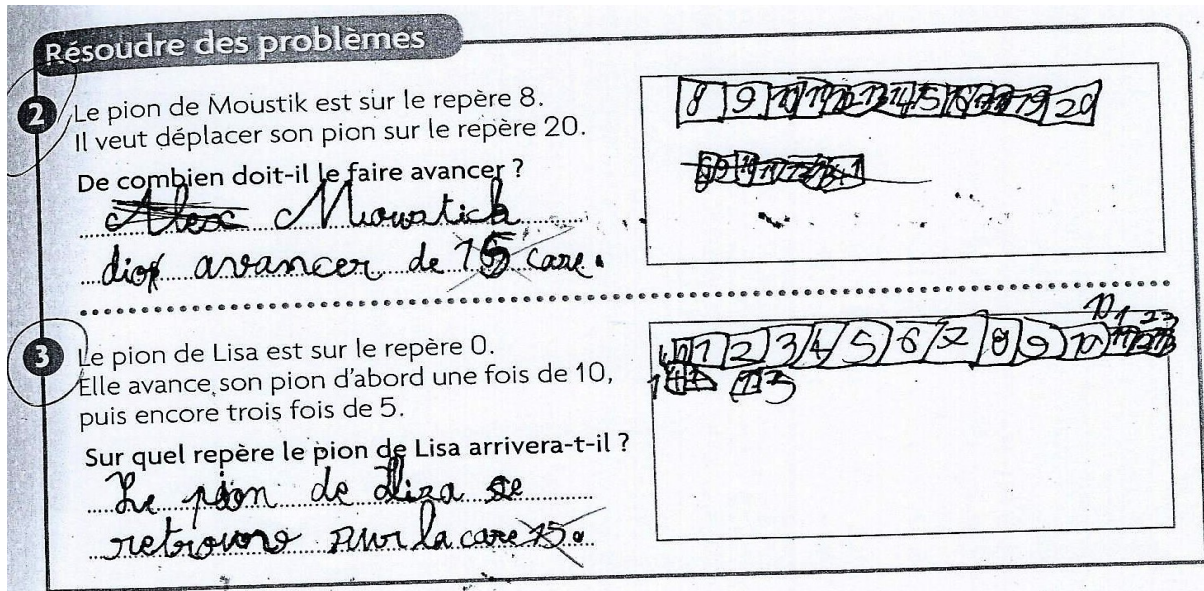 Résoudre des problèmes
2 Le pion de Moustik est sur le repère 8.
Il veut déplacer son pion sur le repère 20.
De combien doit-il le faire avancer ?
Alex Mowstick
avancer de 15 case.
8 9 10 11 12 13 14 15 16 17 18 19 20
3 Le pion de Lisa est sur le repère 0.
Elle avance son pion d'abord une fois de 10,
puis encore trois fois de 5.
Sur quel repère le pion de Lisa arrivera-t-il ?
Le pion de Liza se
retrouve sur la case 15.
1 2 3 4 5 6 7 8 9 10 11 12 13